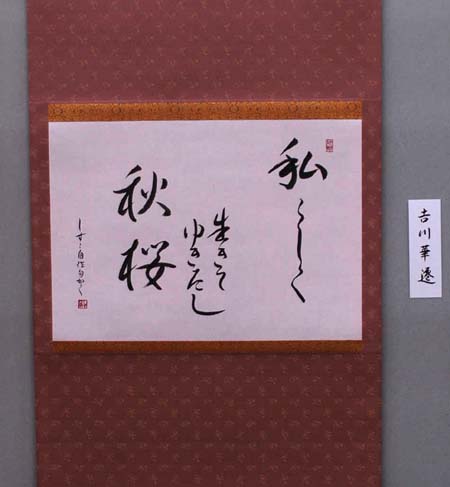 私らしく
生きて
ゆきたし
秋桜
自作句かく
吉川華